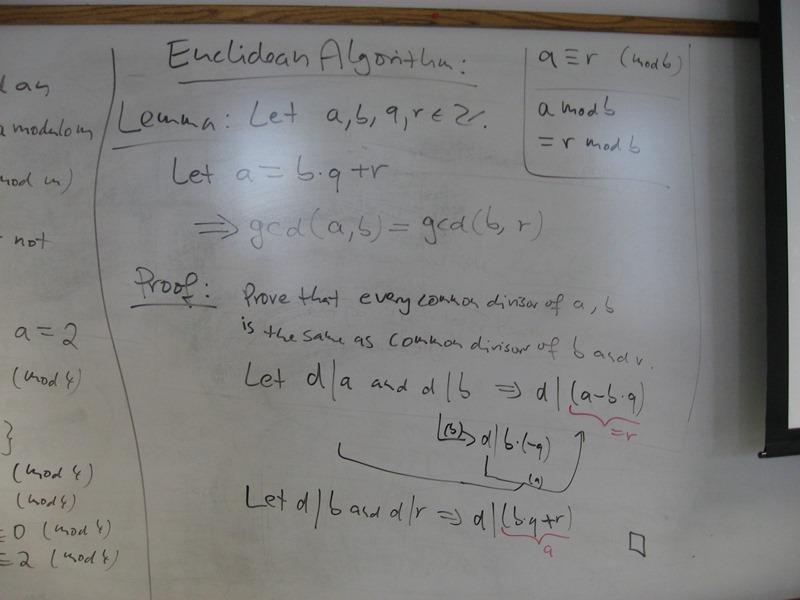 d an
a modulo m
mod m)
not
a = 2
(mod 4)
}
(mod 4)
(mod 4)
≡ 0 (mod 4)
≡ 2 (mod 4)
Euclidean Algorithm:
Lemma: Let a, b, q, r ∈ ℤ.
Let a = b·q + r
⇒ gcd(a, b) = gcd(b, r)
Proof: Prove that every common divisor of a, b
is the same as common divisor of b and r.
Let d | a and d | b ⇒ d | (a - b·q)
= r
(3) → d | b·(-q)
Let d | b and d | r ⇒ d | (b·q + r)
a
□
a ≡ r (mod b)
a mod b
= r mod b